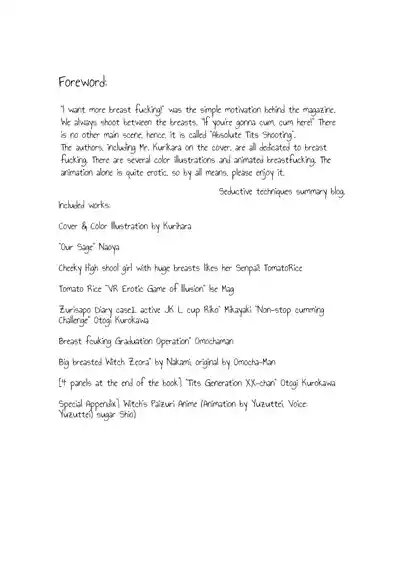 Foreword:
"I want more breast fucking!" was the simple motivation behind the magazine.
We always shoot between the breasts. "If you're gonna cum, cum here!" There
is no other main scene, hence, it is called "Absolute Tits Shooting".
The authors, including Mr. Kurikara on the cover, are all dedicated to breast
fucking. There are several color illustrations and animated breastfucking. The
animation alone is quite erotic, so by all means, please enjoy it.
Seductive techniques summary blog.
Included works:
Cover & Color Illustration by Kurihara
"Our Sage" Naoya
Tomato Rice "VR Erotic Game of Illusion" Ise Mag
Breast fcuking Graduation Operation" Omochaman
Big breasted Witch Zeora" by Nakami, original by Omocha-Man
[4 panels at the end of the book] "Tits Generation XX-chan" Otogi Kurokawa
Special Appendix] Witch's Paizuri Anime (Animation by Yuzuttei, Voice:
Yuzuttei) sugar Shio)